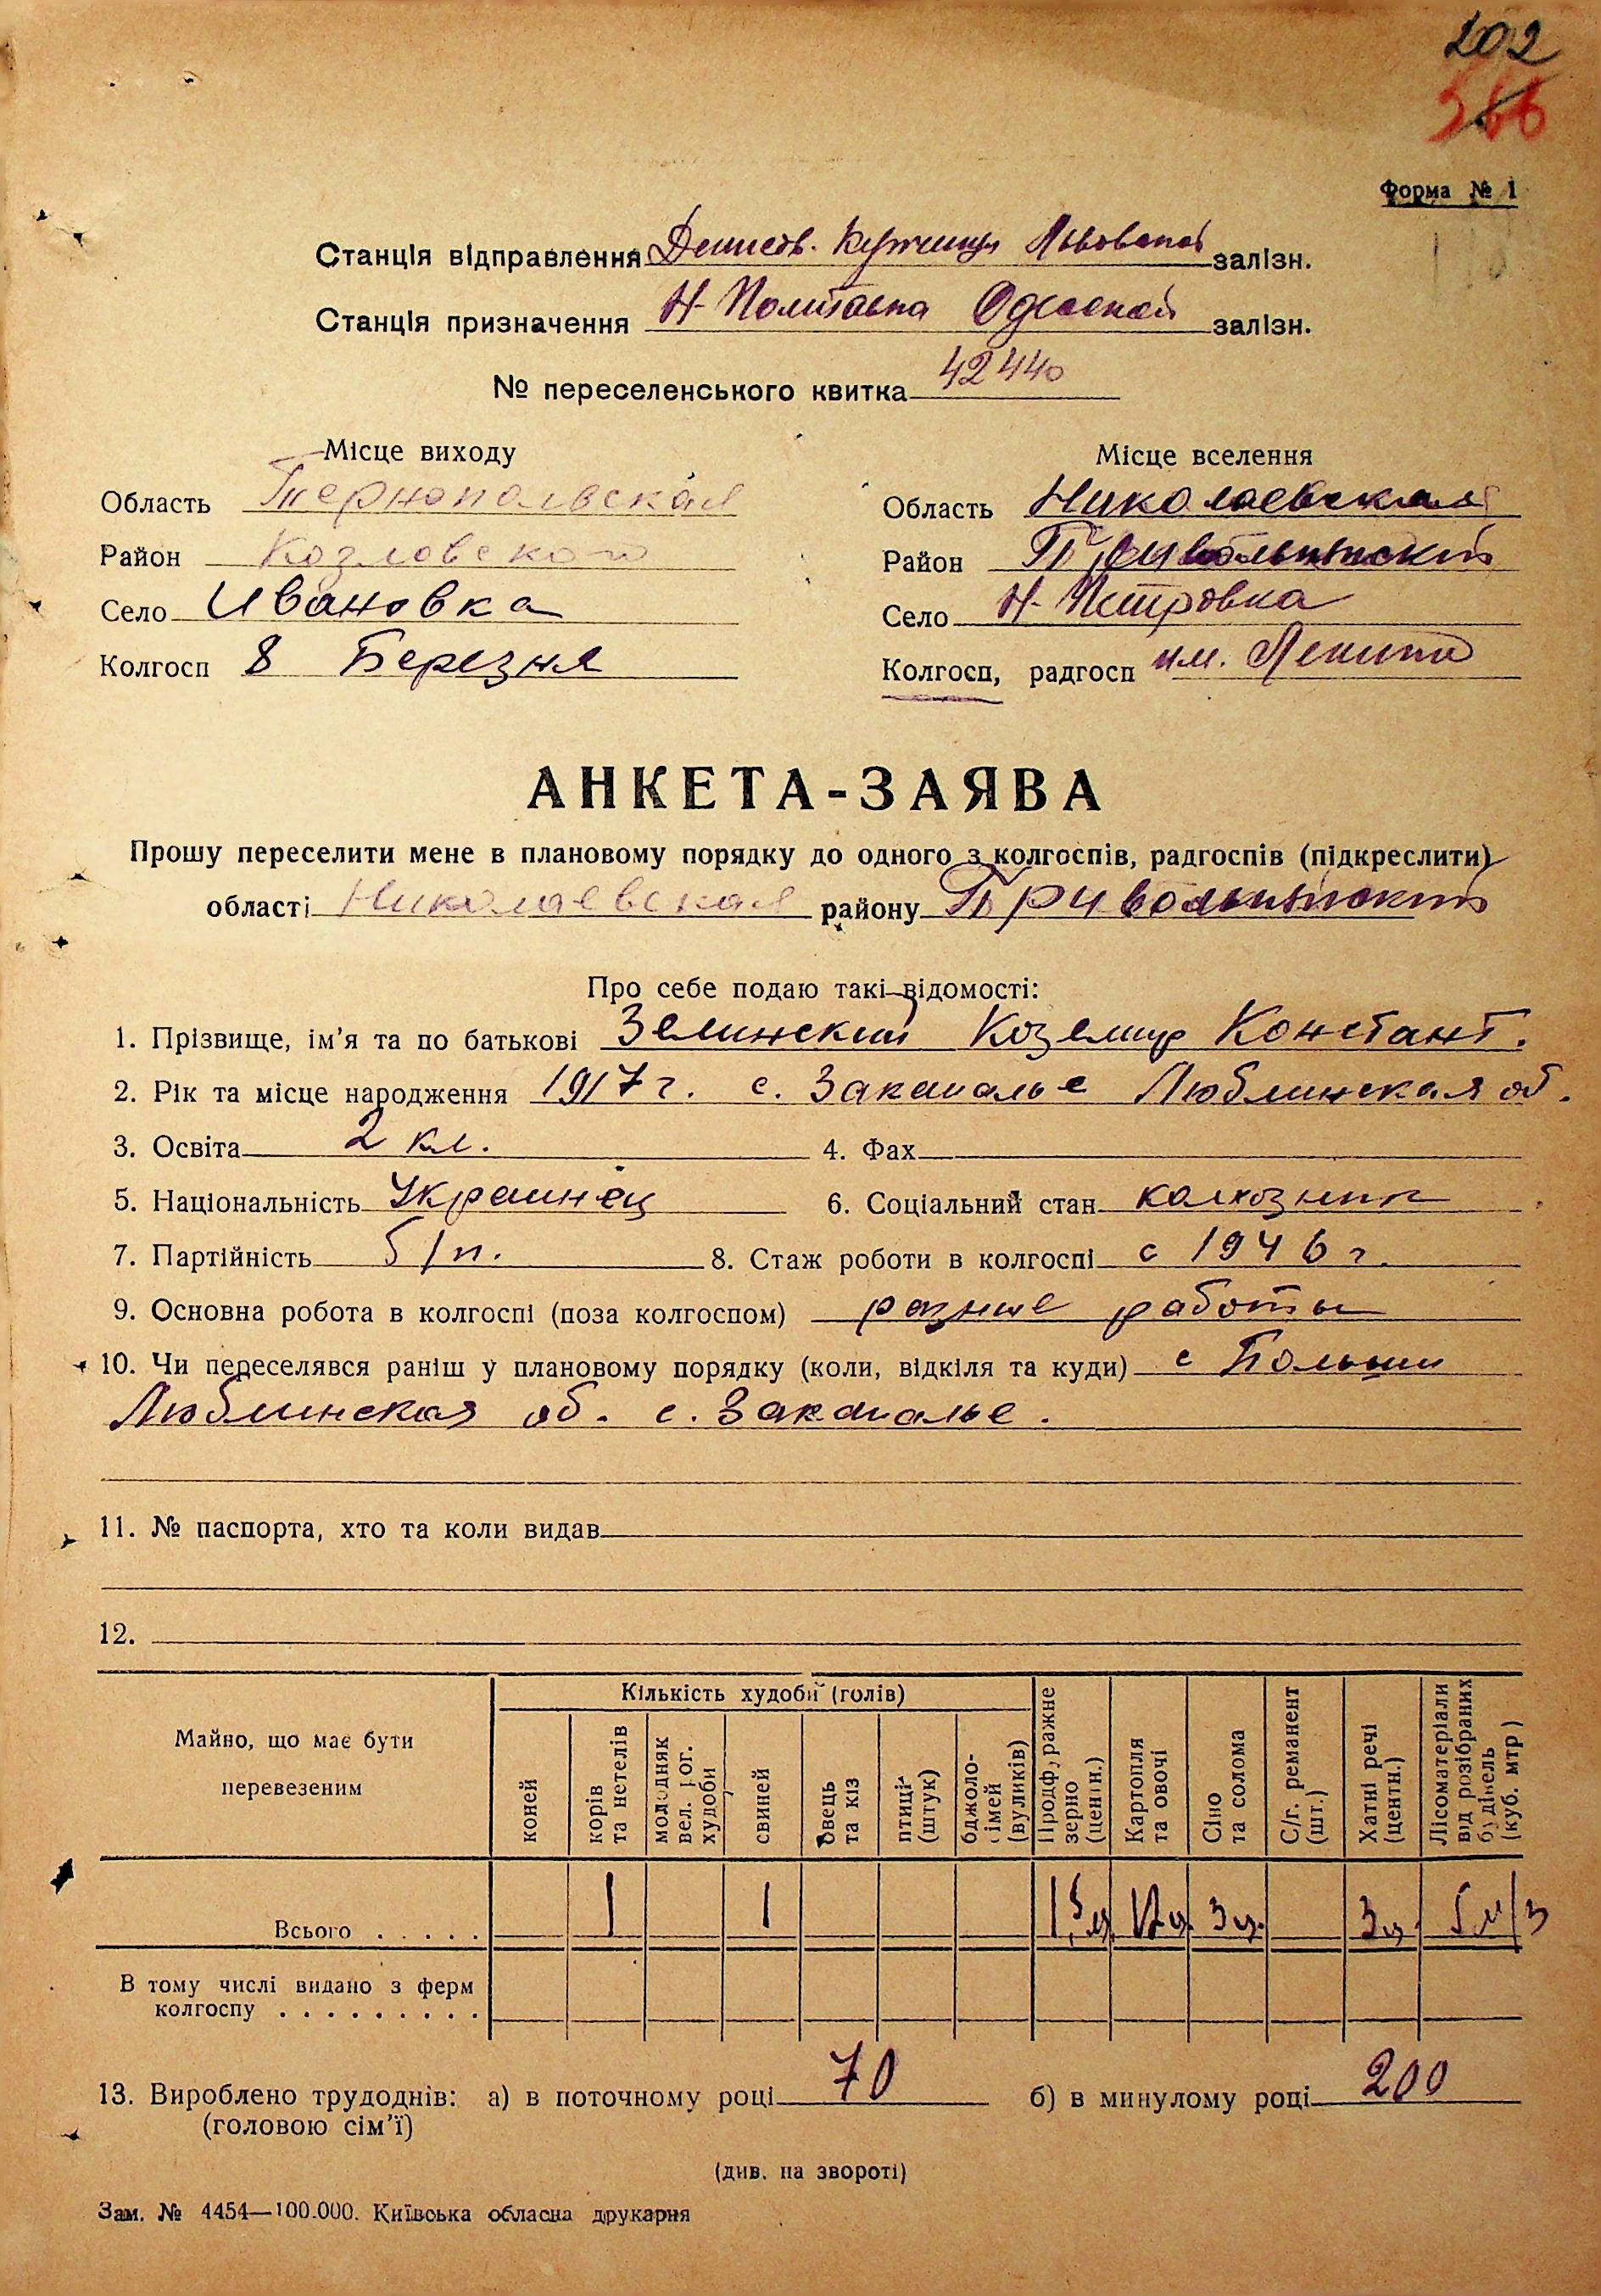 202
566
Форма № 1
Станція відправлення Денисов. Купчинцы Львовской залізн.
Станція призначення Н-Полтавка Одесской залізн.
№ переселенського квитка 42440
Місце виходу
Область Тернопольская
Район Козловского
Село Ивановка
Колгосп 8 Березня
Місце вселення
Область Николаевская
Район Привольнянский
Село Н-Петровка
Колгосп, радгосп им. Ленина
АНКЕТА-ЗАЯВА
Прошу переселити мене в плановому порядку до одного з колгоспів, радгоспів (підкреслити)
області Николаевская району Привольнянский
Про себе подаю такі відомості:
1. Прізвище, ім'я та по батькові Зелинский Коземир Констант.
2. Рік та місце народження 1917 г. с. Заканалье Люблинская об.
3. Освіта 2 кл. 4. Фах
5. Національність Украинец 6. Соціальний стан колхозник
7. Партійність б/п. 8. Стаж роботи в колгоспі с 1946 г.
9. Основна робота в колгоспі (поза колгоспом) разные работы
10. Чи переселявся раніш у плановому порядку (коли, відкіля та куди) с Польши
Люблинская об. с. Заканалье.
11. № паспорта, хто та коли видав
12.
Майно, що має бути перевезеним
Кількість худоби (голів)
коней
корів та нетелів
молодняк вел. рог. худоби
свиней
овець та кіз
птиці (штук)
бджоло-сімей (вуликів)
Продфуражне зерно (центн.)
Картопля та овочі
Сіно та солома
С/г. реманент (шт.)
Хатні речі (центн.)
Лісоматеріали від розібраних будівель (куб. мтр)
Всього . . . . . 1 1 1,5 ц. 3 ц. 3 ц. 5 м/3
В тому числі видано з ферм
колгоспу . . . . . . . . .
13. Вироблено трудоднів: а) в поточному році 70 б) в минулому році 200
(головою сім'ї)
(див. на звороті)
Зам. № 4454—100.000. Київська обласна друкарня